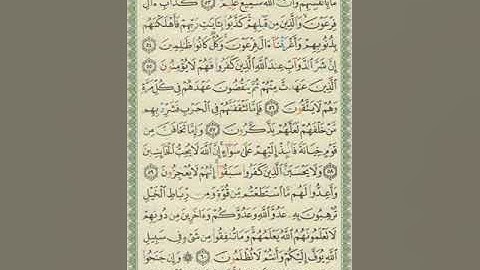 مَا بِأَنفُسِهِمْ وَأَنَّ ٱللَّهَ سَمِيعٌ عَلِيمٌ ٥٣ كَدَأْبِ ءَالِ
فِرْعَوْنَ وَٱلَّذِينَ مِن قَبْلِهِمْ كَذَّبُوا۟ بِـَٔايَٰتِ رَبِّهِمْ فَأَهْلَكْنَٰهُم
بِذُنُوبِهِمْ وَأَغْرَقْنَآ ءَالَ فِرْعَوْنَ وَكُلٌّ كَانُوا۟ ظَٰلِمِينَ ٥٤
إِنَّ شَرَّ ٱلدَّوَآبِّ عِندَ ٱللَّهِ ٱلَّذِينَ كَفَرُوا۟ فَهُمْ لَا يُؤْمِنُونَ ٥٥
ٱلَّذِينَ عَٰهَدتَّ مِنْهُمْ ثُمَّ يَنقُضُونَ عَهْدَهُمْ فِى كُلِّ مَرَّةٍ
وَهُمْ لَا يَتَّقُونَ ٥٦ فَإِمَّا تَثْقَفَنَّهُمْ فِى ٱلْحَرْبِ فَشَرِّدْ بِهِم
مَّنْ خَلْفَهُمْ لَعَلَّهُمْ يَذَّكَّرُونَ ٥٧ وَإِمَّا تَخَافَنَّ مِن
قَوْمٍ خِيَانَةً فَٱنۢبِذْ إِلَيْهِمْ عَلَىٰ سَوَآءٍ إِنَّ ٱللَّهَ لَا يُحِبُّ ٱلْخَآئِنِينَ
٥٨ وَلَا يَحْسَبَنَّ ٱلَّذِينَ كَفَرُوا۟ سَبَقُوٓا۟ إِنَّهُمْ لَا يُعْجِزُونَ ٥٩
وَأَعِدُّوا۟ لَهُم مَّا ٱسْتَطَعْتُم مِّن قُوَّةٍ وَمِن رِّبَاطِ ٱلْخَيْلِ
تُرْهِبُونَ بِهِۦ عَدُوَّ ٱللَّهِ وَعَدُوَّكُمْ وَءَاخَرِينَ مِن دُونِهِمْ
لَا تَعْلَمُونَهُمُ ٱللَّهُ يَعْلَمُهُمْ وَمَا تُنفِقُوا۟ مِن شَىْءٍ فِى سَبِيلِ
ٱللَّهِ يُوَفَّ إِلَيْكُمْ وَأَنتُمْ لَا تُظْلَمُونَ ٦٠ ۞ وَإِن جَنَحُوا۟